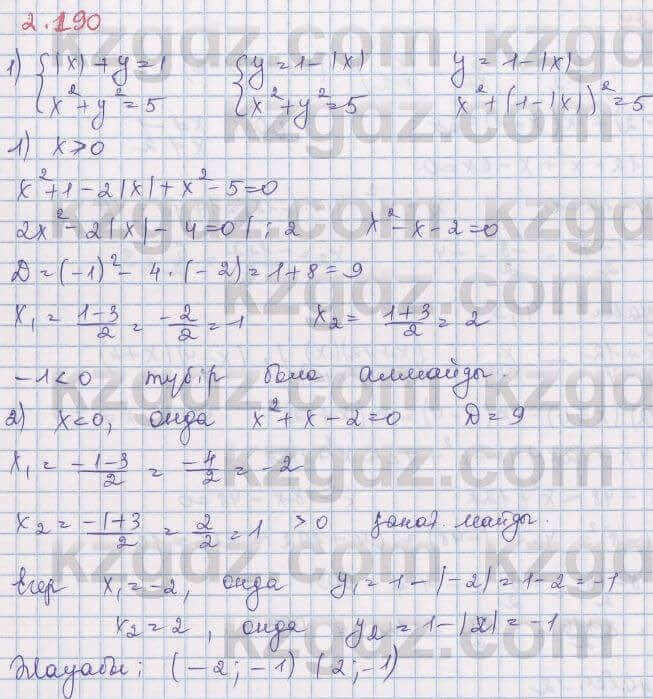 2.190
1) {|x|+y=1 {y=1-|x| y=1-|x|
x²+y²=5 x²+y²=5 x²+(1-|x|)²=5
1) x>0
x²+1-2|x|+x²-5=0
2x²-2|x|-4=0 | : 2 x²-x-2=0
D=(-1)²-4·(-2)=1+8=9
x₁= (1-3)/2 = -2/2 = -1 x₂= (1+3)/2 = 2
-1<0 түбір бола алмайды.
2) x<0, онда x²+x-2=0 D=9
x₁= (-1-3)/2 = -4/2 = -2
x₂= (-1+3)/2 = 2/2 = 1 >0 қанағ. майды.
Егер x₁=-2, онда y₁=1-|-2|=1-2=-1
x₂=2, онда y₂=1-|2|=-1
Жауабы: (-2;-1) (2;-1)
kzgdz.com